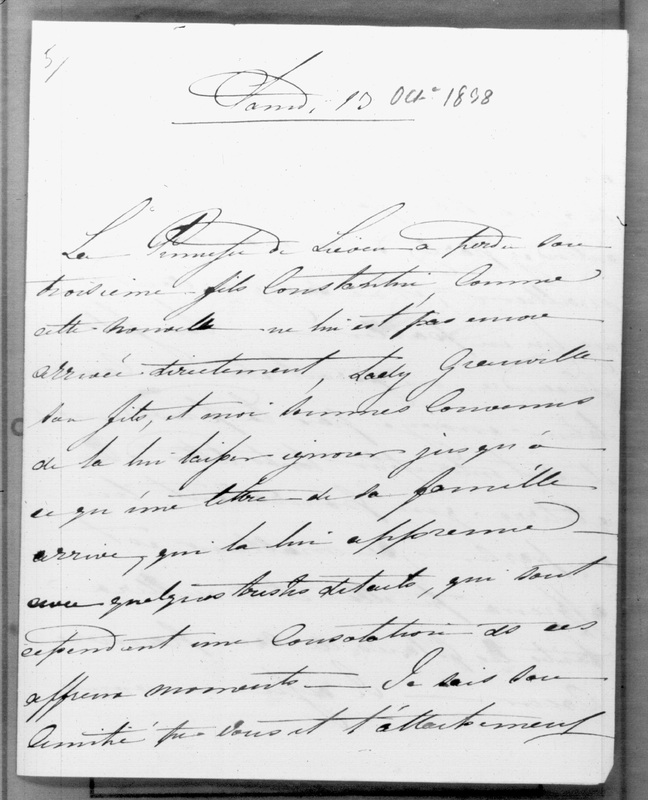 5/
Paris, 13 Oct. 1838
La Princesse de Lieven a perdu son
troisième fils Constantin, comme
cette nouvelle ne lui est pas encore
arrivée directement, Lady Granville
son fils, et moi sommes convenus
de la lui laisser ignorer jusqu'à
ce qu'une lettre de sa famille
arrive, qui la lui apprenne
avec quelques tristes détails, qui sont
cependant une consolation ds ces
affreux moments — Je sais son
amitié pr vous et l'attachement